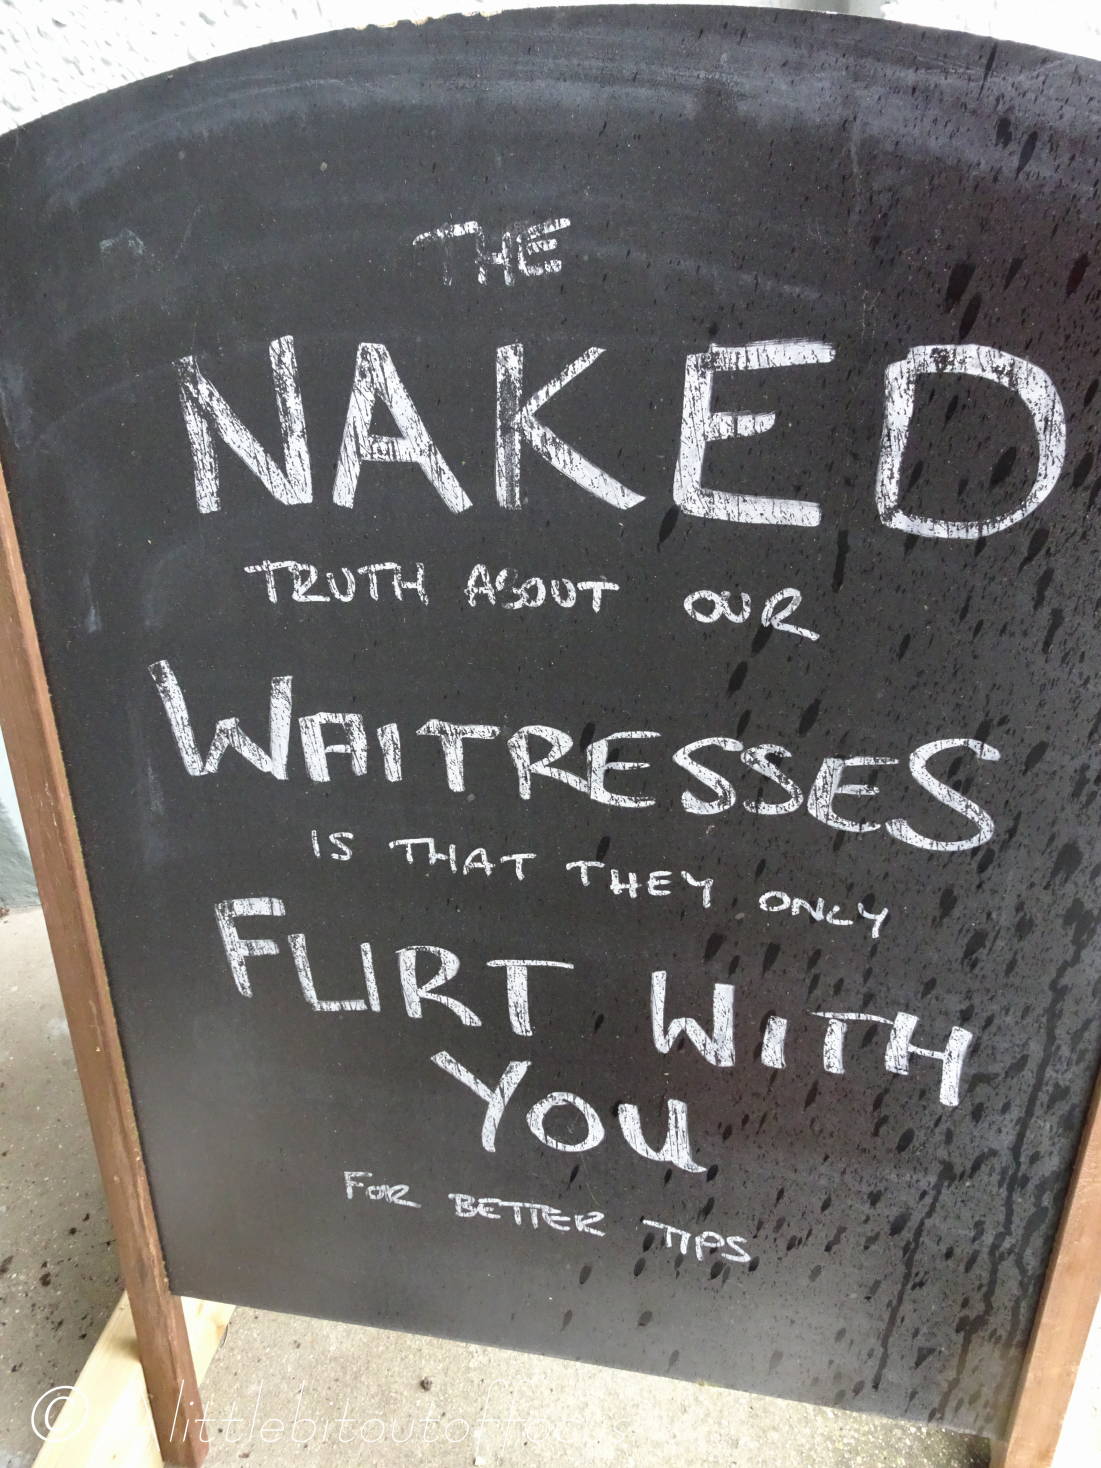 THE
NAKED
TRUTH ABOUT OUR
WAITRESSES
IS THAT THEY ONLY
FLIRT WITH
YOU
FOR BETTER TIPS
© littlebitoutoffocus